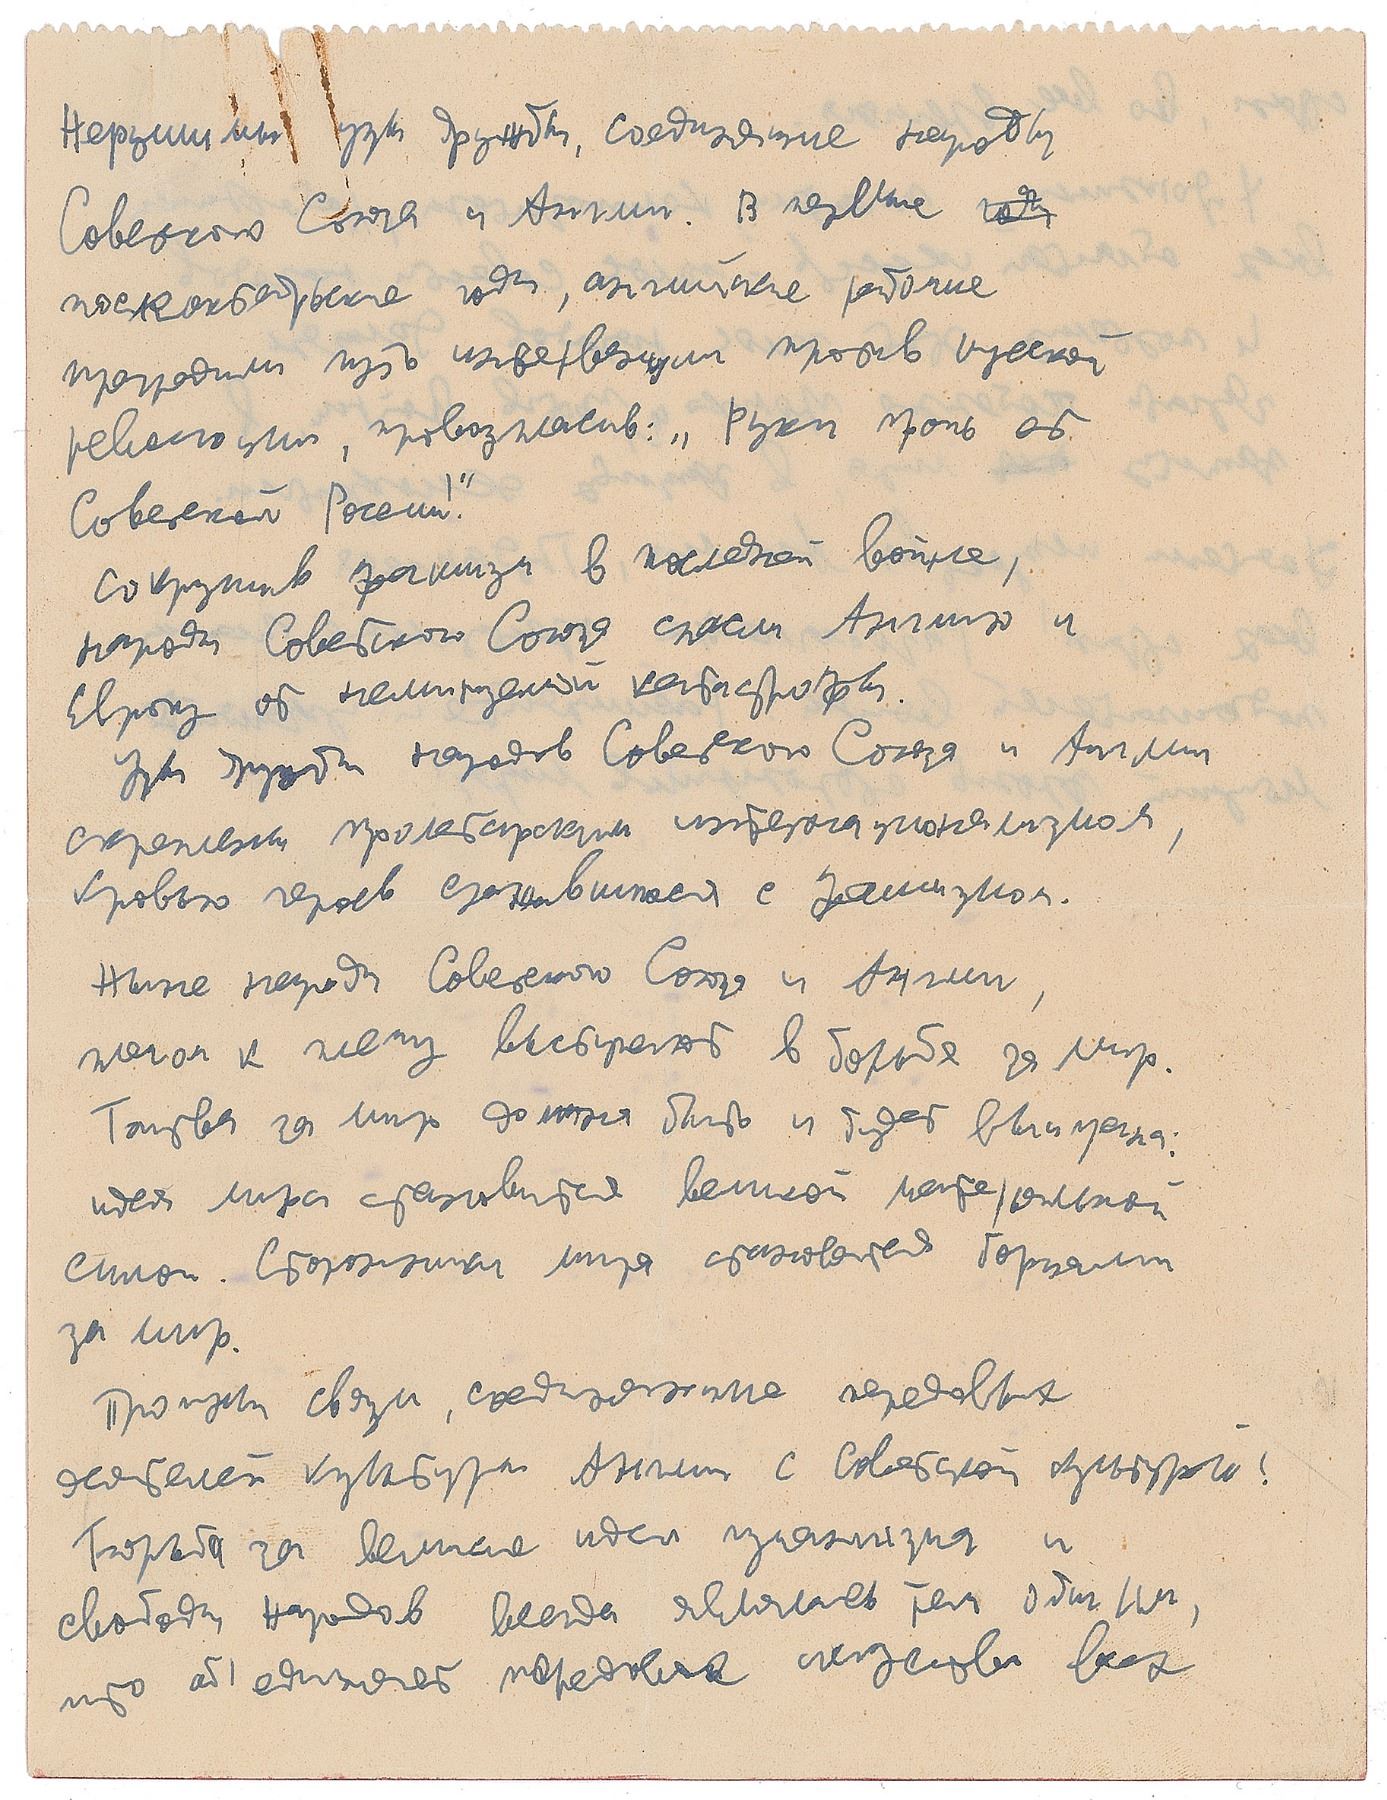 Нерушимы узы дружбы, соединяющие народы
Советского Союза и Англии. В первые годы
послеоктябрьские годы, английские рабочие
преградили путь интервенции против русской
революции, провозгласив: „Руки прочь от
Советской России!"
Сокрушив фашизм в последней войне,
народы Советского Союза спасли Англию и
Европу от неминуемой катастрофы.
Узы дружбы народов Советского Союза и Англии
скреплены пролетарским интернационализмом,
кровью героев сражавшихся с фашизмом.
Ныне народы Советского Союза и Англии,
плечом к плечу выступают в борьбе за мир.
Битва за мир должна быть и будет выиграна:
идея мира становится великой материальной
силой. Сторонники мира становятся борцами
за мир.
Прочны связи, соединяющие передовых
деятелей культуры Англии с Советской культурой!
Борьба за великие идеи гуманизма и
свободы народов всегда являлась тем общим,
что объединяет передовые искусства всех